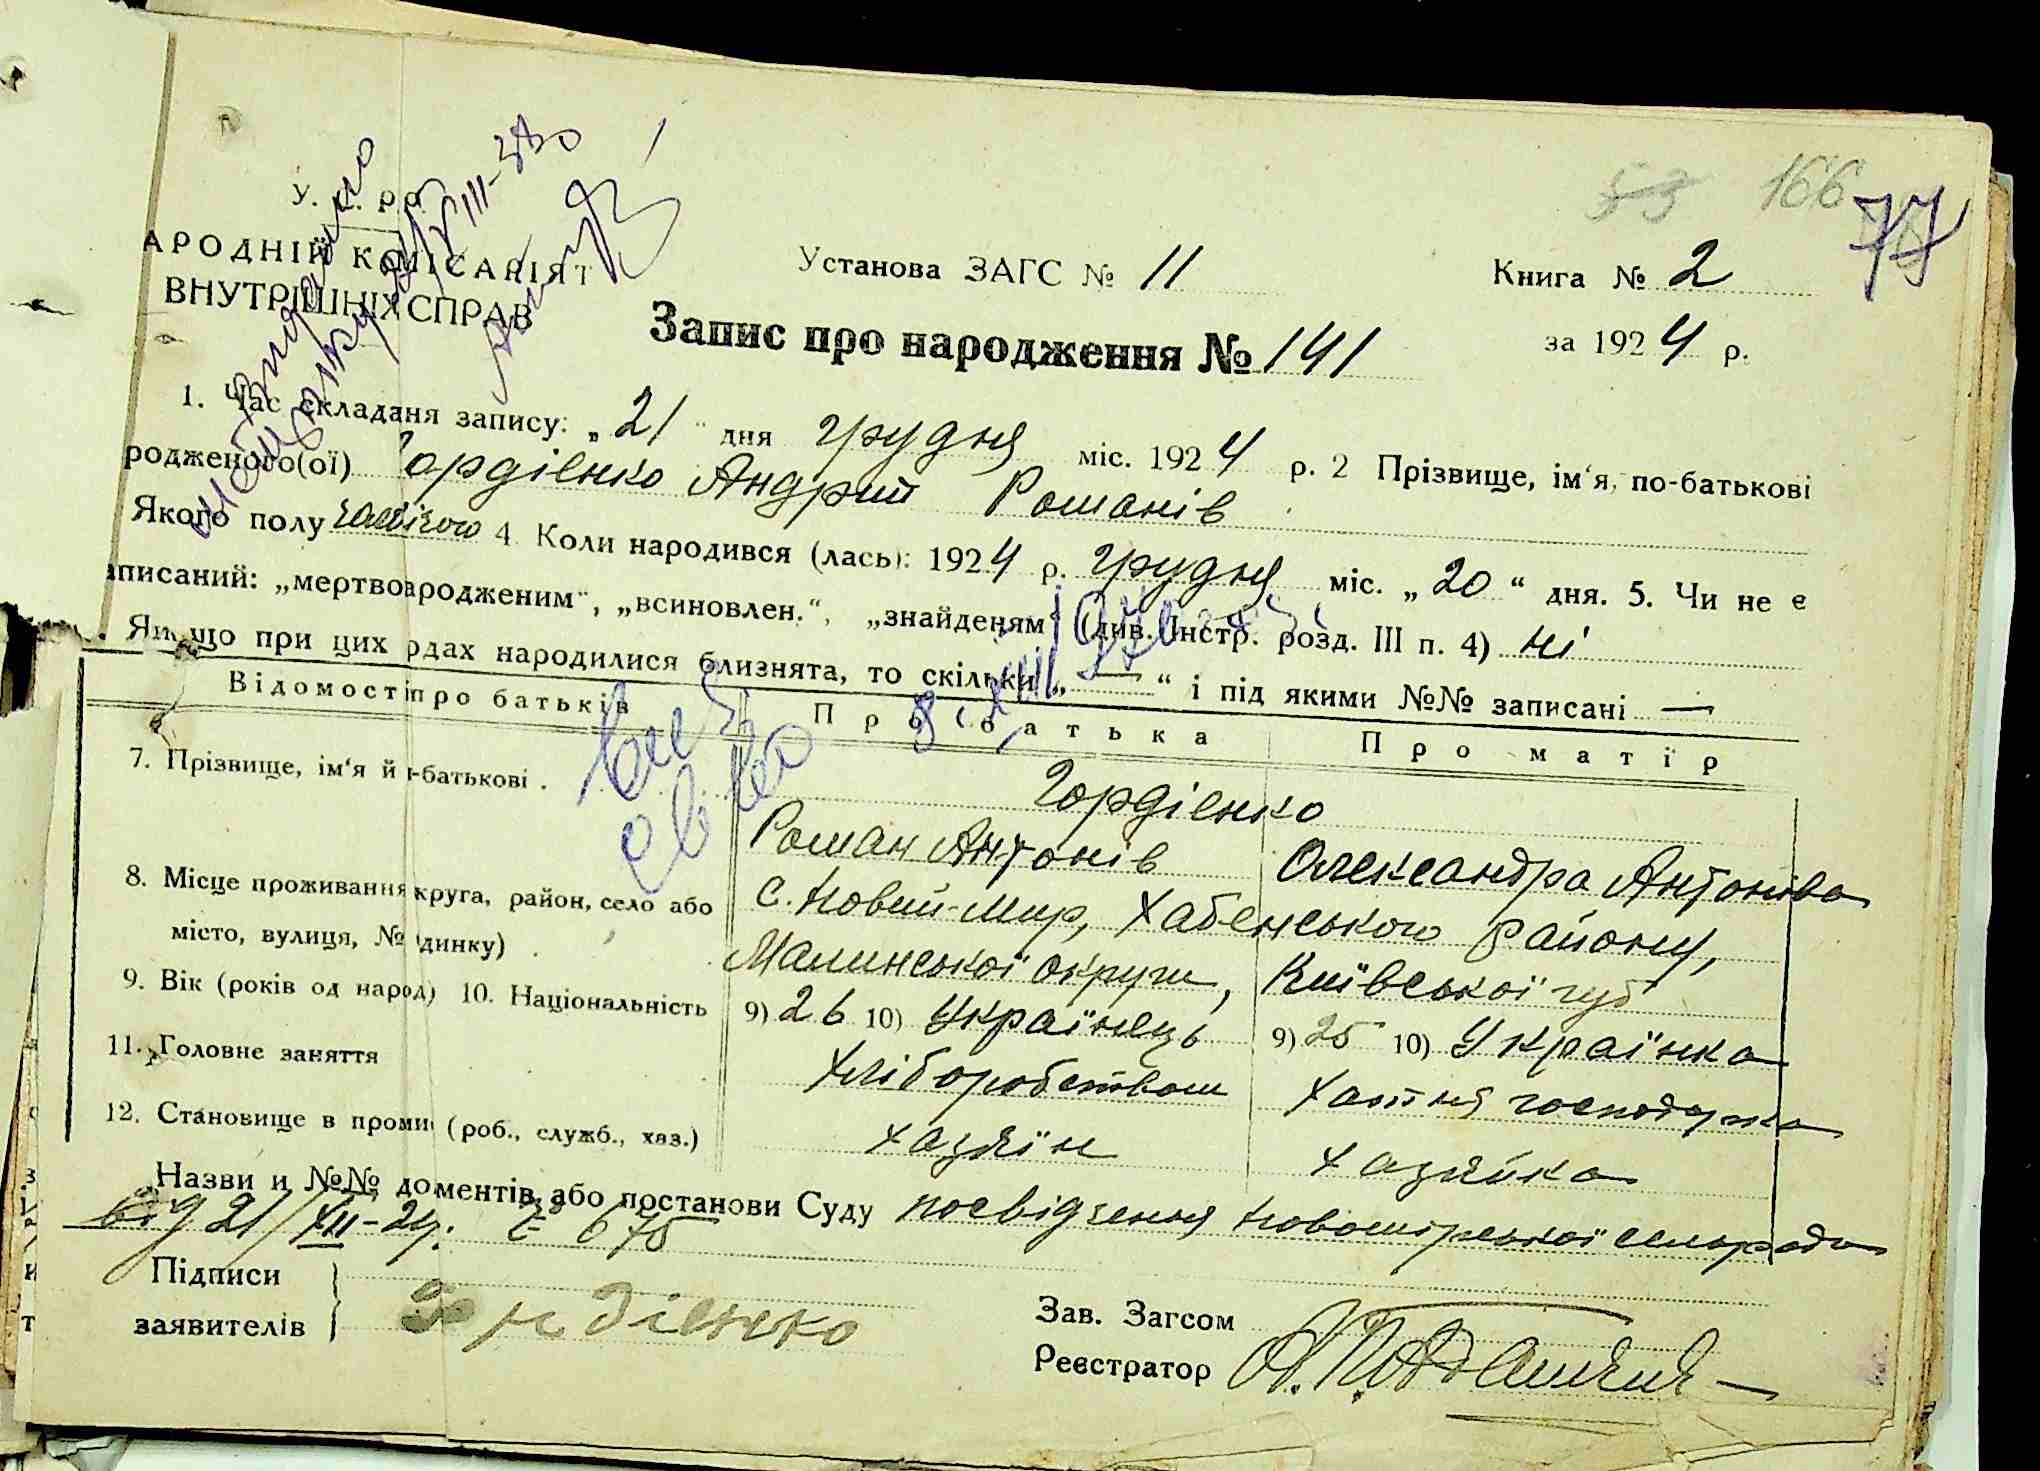 166
77
У. С. Р. Р.
АРОДНІЙ КОМІСАРІЯТ
ВНУТРІШНІХ СПРАВ
Установа ЗАГС № 11
Книга № 2
Запис про народження № 141
за 1924 р.
1. Час складаня запису: „21“ дня грудня міс. 1924 р. 2 Прізвище, ім‘я, по-батькові
родженого(ої) Гордієнко Андрий Романів
Якого полу чоловічого 4. Коли народився (лась): 1924 р. грудня міс. „20“ дня. 5. Чи не є
аписаний: „мертвоародженим“, „всиновлен.“, „знайденям“ (див. Інстр. розд. III п. 4) ні
Якщо при цих рдах народилися близнята, то скільки „—“ і під якими №№ записані —
Відомості про батьків
Про батька
Про матір
7. Прізвище, ім‘я й -батькові .
Гордієнко
Роман Антонів
Олександра Антонова
8. Місце проживання круга, район, село або
місто, вулиця, № динку)
с. Новий-Мир, Хабенського району,
Малинської округи, Київської губ
9. Вік (років од народ) 10. Національність
9) 26 10) Українець
9) 25 10) Українка
11. Головне заняття
Хліборобством
Хатня господарка
12. Становище в проми (роб., служб., хаз.)
хазяїн
хазяйка
Назви и №№ доментів або постанови Суду посвідчення Новомирської сельради
від 21/XII-24. № 675
Підписи
заявителів
Гордієнко
Зав. Загсом
Реєстратор